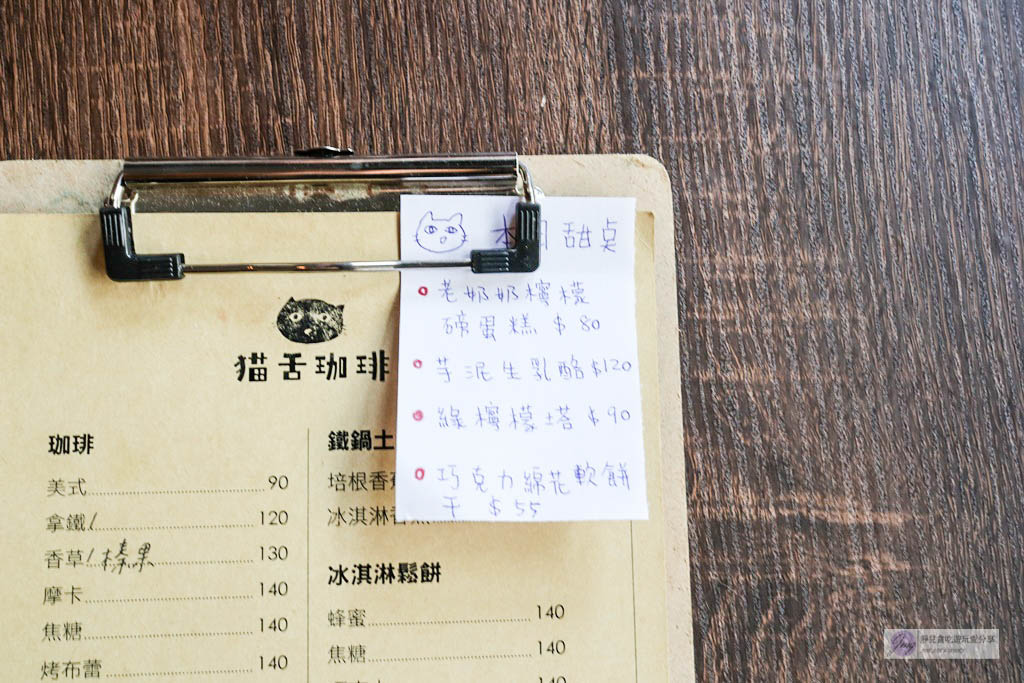 本日甜桌
老奶奶檸檬
磅蛋糕 $80
芋泥生乳酪 $120
綠檸檬塔 $90
巧克力綿花軟餅
干 $55
猫舌珈琲
珈琲
美式 90
拿鐵 120
香草/榛果 130
摩卡 140
焦糖 140
烤布蕾 140
鐵鍋土
培根香
冰淇淋香蕉
冰淇淋鬆餅
蜂蜜 140
焦糖 140
140
靜兒貪吃遊玩愛分享